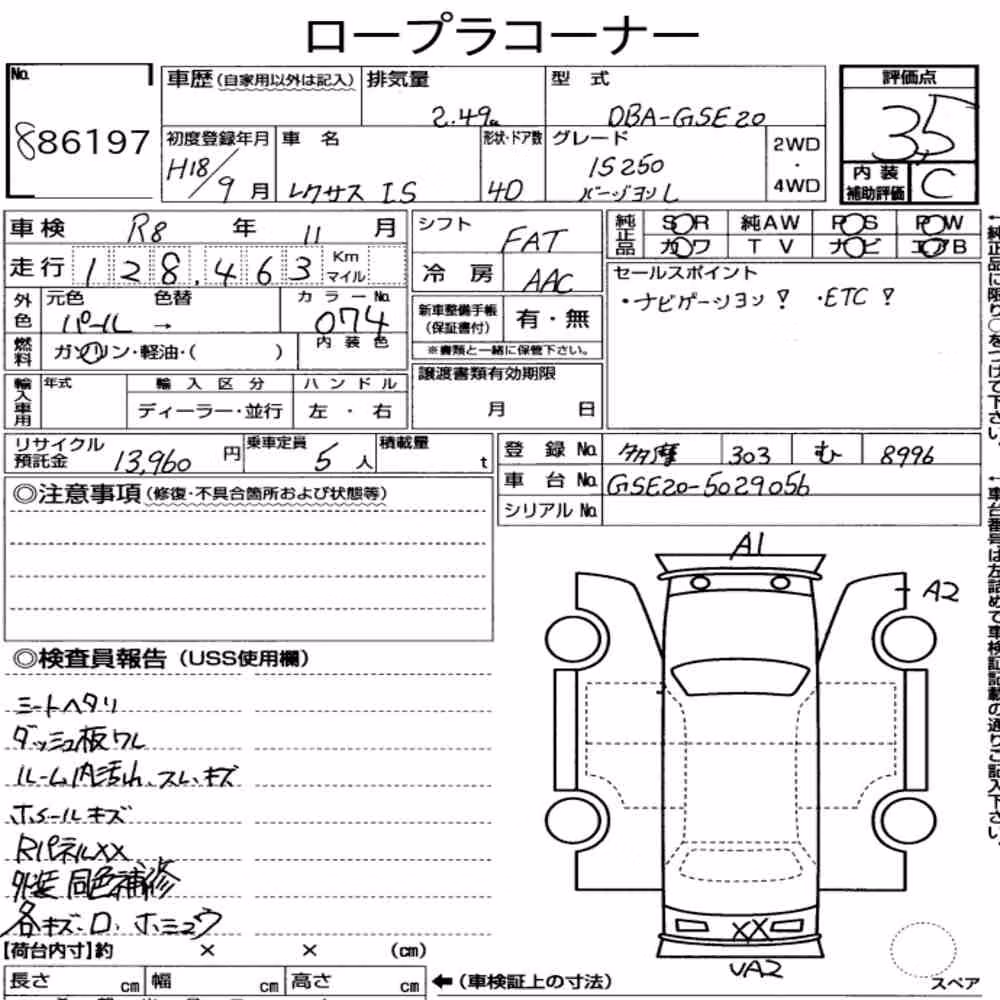 ロープラコーナー
No.
886197
車歴(自家用以外は記入) 排気量 型式
2.49 DBA-GSE20
初度登録年月 車名 形状・ドア数 グレード 2WD・4WD
H18/9月 レクサス IS 4D IS250
バージョンL
評価点
3.5
内装補助評価 C
車検 R8年 11月
走行 128,463 Km マイル
外色 元色 色替 カラーNo.
パール → 074
燃料 ガソリン・軽油・( ) 内装色
輸入車用 年式 輸入区分 ハンドル
ディーラー・並行 左・右
シフト FAT
冷房 AAC
新車整備手帳(保証書付) 有・無
※書類と一緒に保管下さい。
譲渡書類有効期限
月 日
純正品 SR 純AW PS PW
カワ TV ナビ エアB
セールスポイント
・ナビゲーション ? ・ETC ?
リサイクル預託金 13,960円 乗車定員 5人 積載量 t
登録No. 多摩 303 む 8996
車台No. GSE20-5029056
シリアルNo.
◎注意事項(修復・不具合箇所および状態等)
◎検査員報告(USS使用欄)
シートヘタリ
ダッシュ板ワレ
ルーム内汚れ、スレ、キズ
ホイールキズ
RパネルXX
外装同色補修
各キズ・ロ、ホミュウ
A1
A2
XX
UA2
スペア
【荷台内寸】約 × × (cm)
長さ cm 幅 cm 高さ cm ←(車検証上の寸法)
←純正品に限り○をつけて下さい。
←車台番号は左詰めで車検証記載の通りご記入下さい。